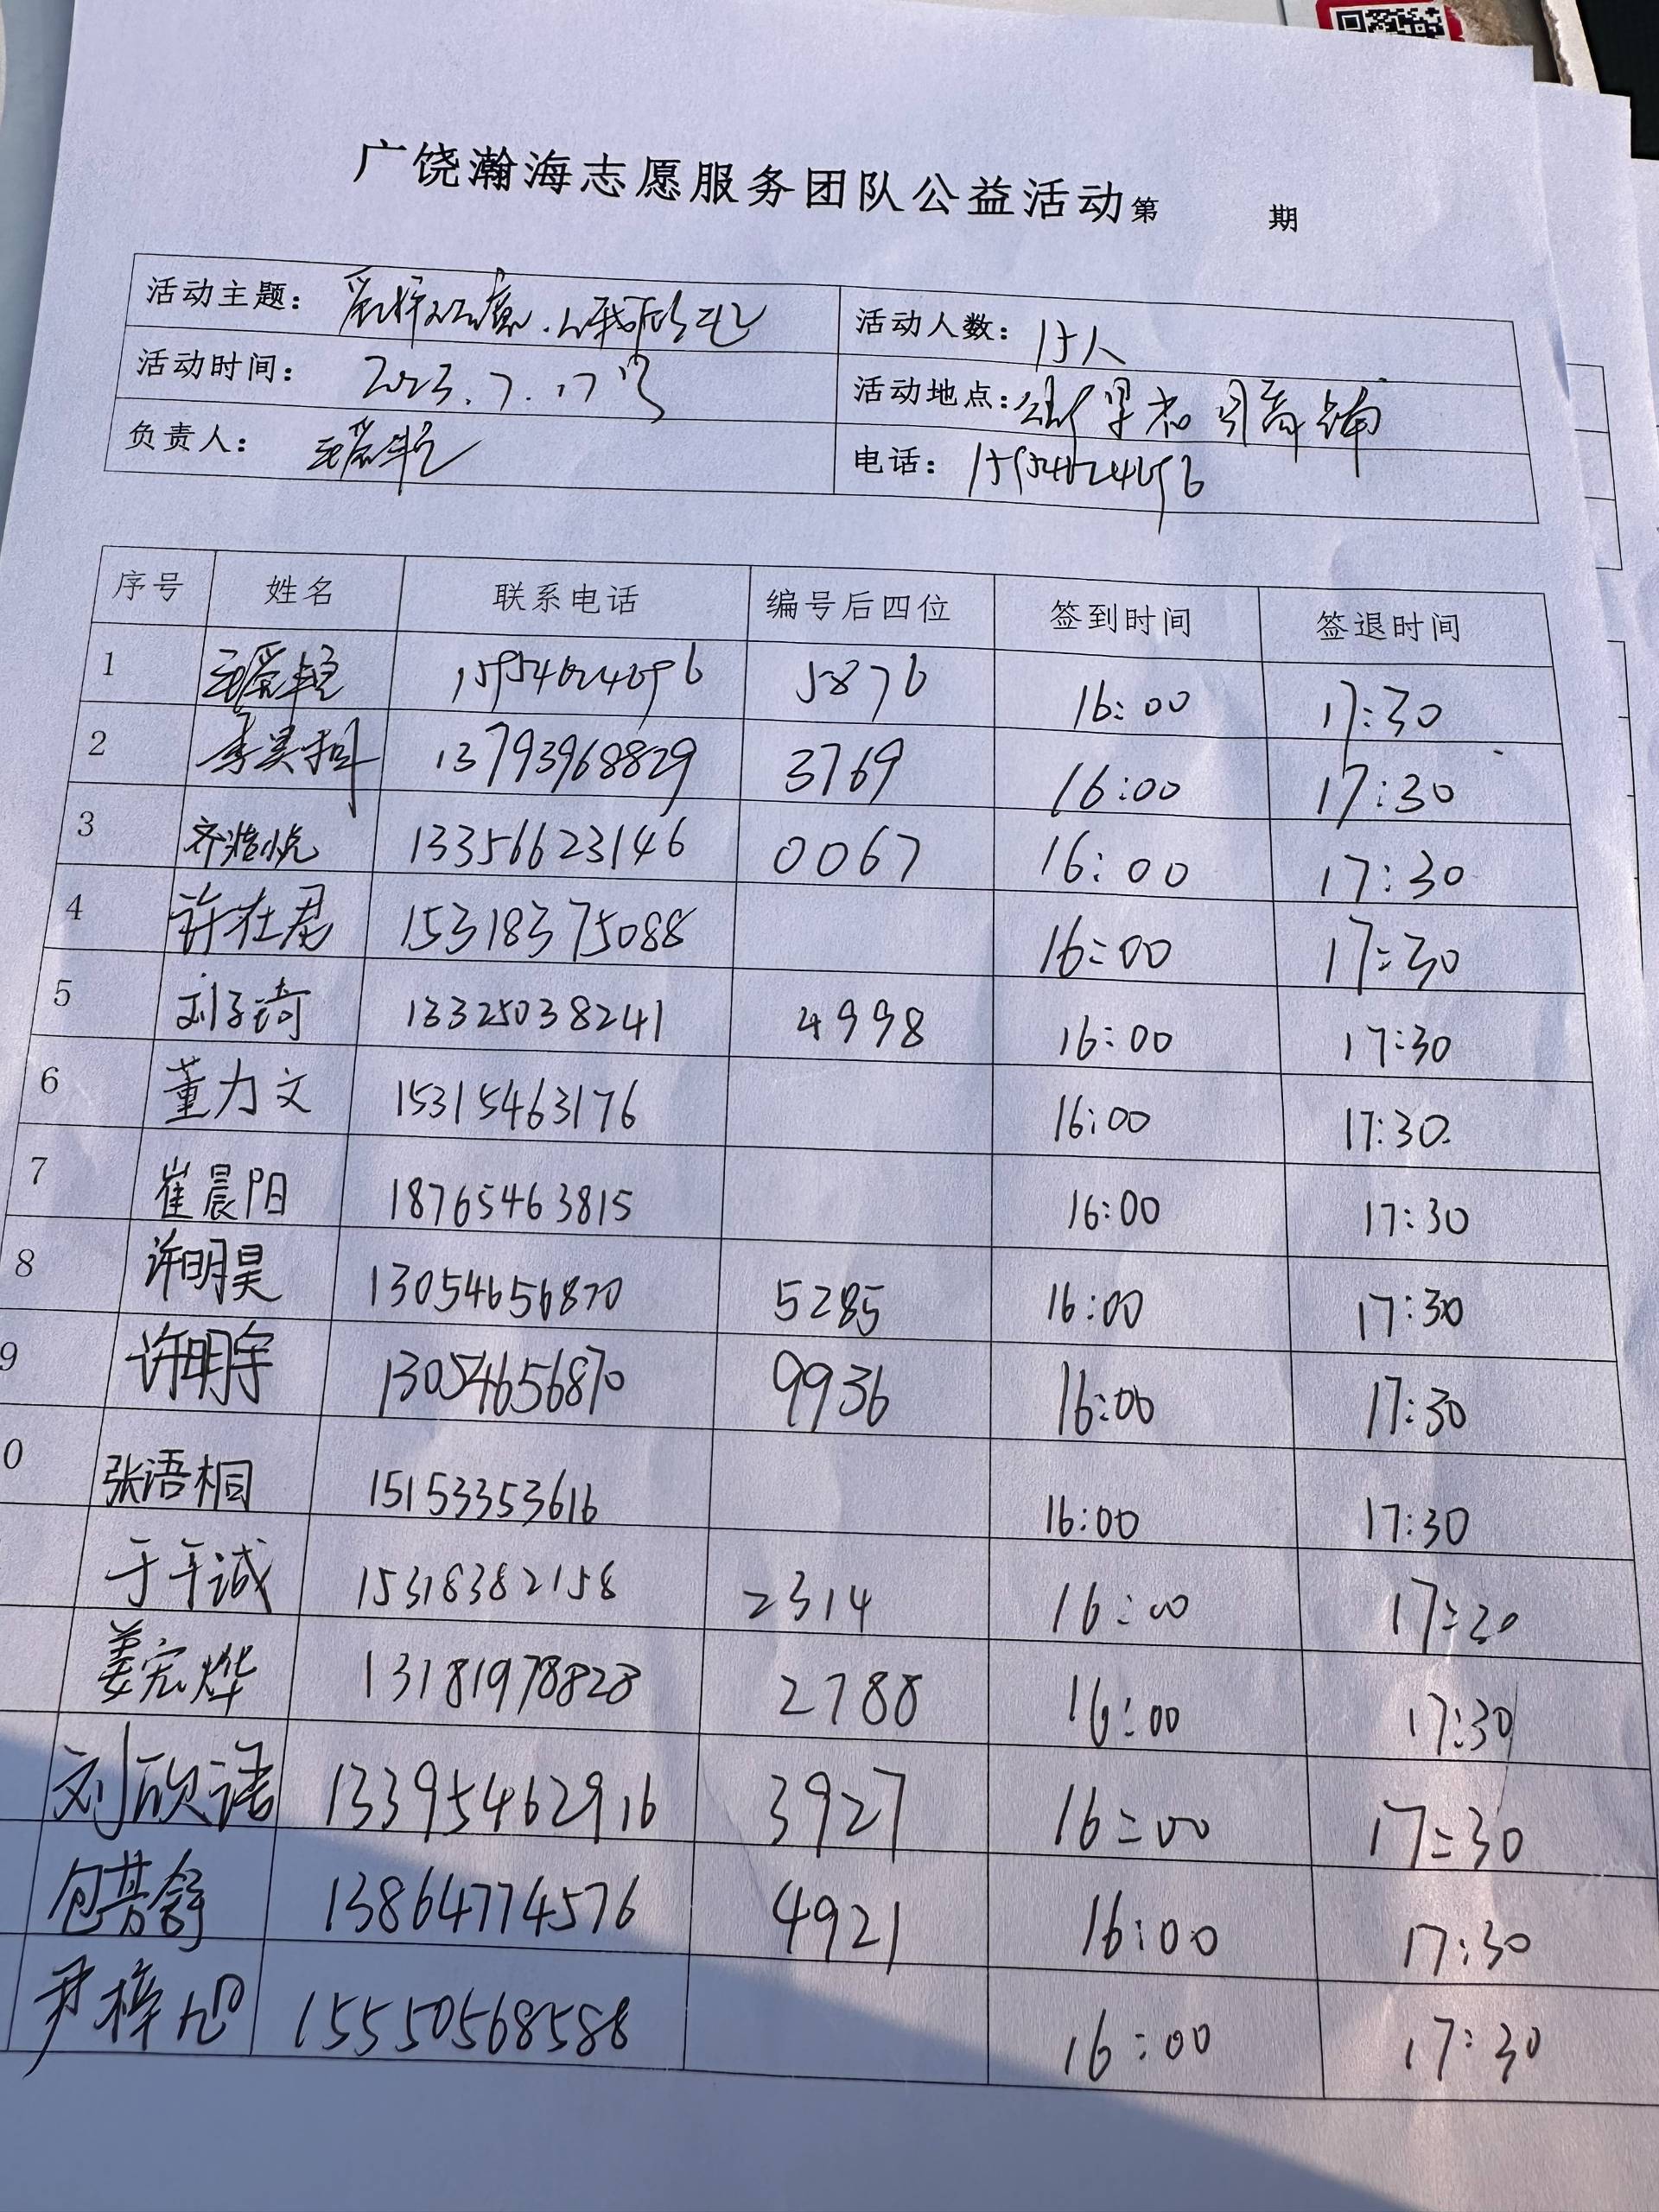 广饶瀚海志愿服务团队公益活动第 期
活动主题： 活动人数：15人
活动时间：2023.7.17 活动地点：
负责人： 电话：15954624696
序号 姓名 联系电话 编号后四位 签到时间 签退时间
1 15954624696 5876 16:00 17:30
2 李昊 13793968829 3769 16:00 17:30
3 齐浩悦 13356623146 0067 16:00 17:30
4 许在君 15318375088 16:00 17:30
5 刘子琦 13325038241 4998 16:00 17:30
6 董力文 15315463176 16:00 17:30
7 崔晨阳 18765463815 16:00 17:30
8 许明昊 13054656870 5285 16:00 17:30
9 许明宇 13054656870 9936 16:00 17:30
0 张语桐 15153353616 16:00 17:30
于千诚 15318382158 2314 16:00 17:30
姜宏烨 13181978828 2788 16:00 17:30
刘欣诺 13395462916 3927 16:00 17:30
包芸舒 13864774576 4921 16:00 17:30
尹梓旭 15550568588 16:00 17:30